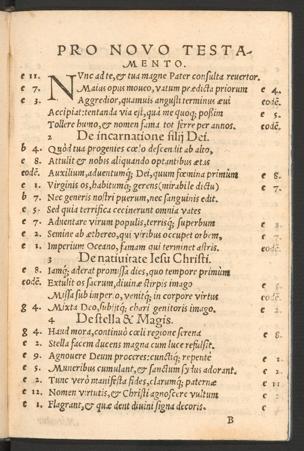 PRO NOVO TESTA-
MENTO.
e 11. NVnc ad te, & tua magne Pater consulta reuertor.
e 7. Maius opus moueo, vatum prædicta priorum e 4.
e 3. Aggredior, quamuis angusti terminus æui eodē.
Accipiat: tentanda via est, quà me quoq; possim e 5.
Tollere humo, & nomen fama tot ferre per annos. eodē.
2 De incarnatione filij Dei.
b 4. Quòd tua progenies cœlo descendit ab alto,
e 8. Attulit & nobis aliquando optantibus ætas
eodē. Auxilium, aduentumq; Dei, quem fœmina primùm e 8.
e 1. Virginis os, habitumq; gerens (mirabile dictu) e 7.
b 7. Nec generis nostri puerum, nec sanguinis edit.
e 5. Sed quia terrifica cecinerunt omnia vates
e 7. Aduentare virum populis, terrisq; superbum e 2.
e 2. Semine ab æthereo, qui viribus occupet orbem, e 7.
e 1. Imperium Oceano, famam qui terminet astris. eodē.
3 De natiuitate Iesu Christi.
e 8. Iamq; aderat promissa dies, quo tempore primùm
eodē. Extulit os sacrum, diuinæ stirpis imago
Missa sub imperio, venitq; in corpore virtus eodē.
g 4. Mixta Deo, subijtq; chari genitoris imago. e 2.
4 De stella & Magis.
g 4. Haud mora, continuò cœli regione serena e 8.
e 2. Stella facem ducens magna cum luce refulsit.
e 9. Agnouere Deum proceres: cunctiq; repentè e 1.
e 5. Muneribus cumulant, & sanctum sydus adorant. e 2.
e 2. Tunc verò manifesta fides, clarumq; paternæ e 11.
e 12. Nomen virtutis, & Christi agnoscere vultum e 2.
e 1. Flagrant, & quæ dent diuini signa decoris. e
B